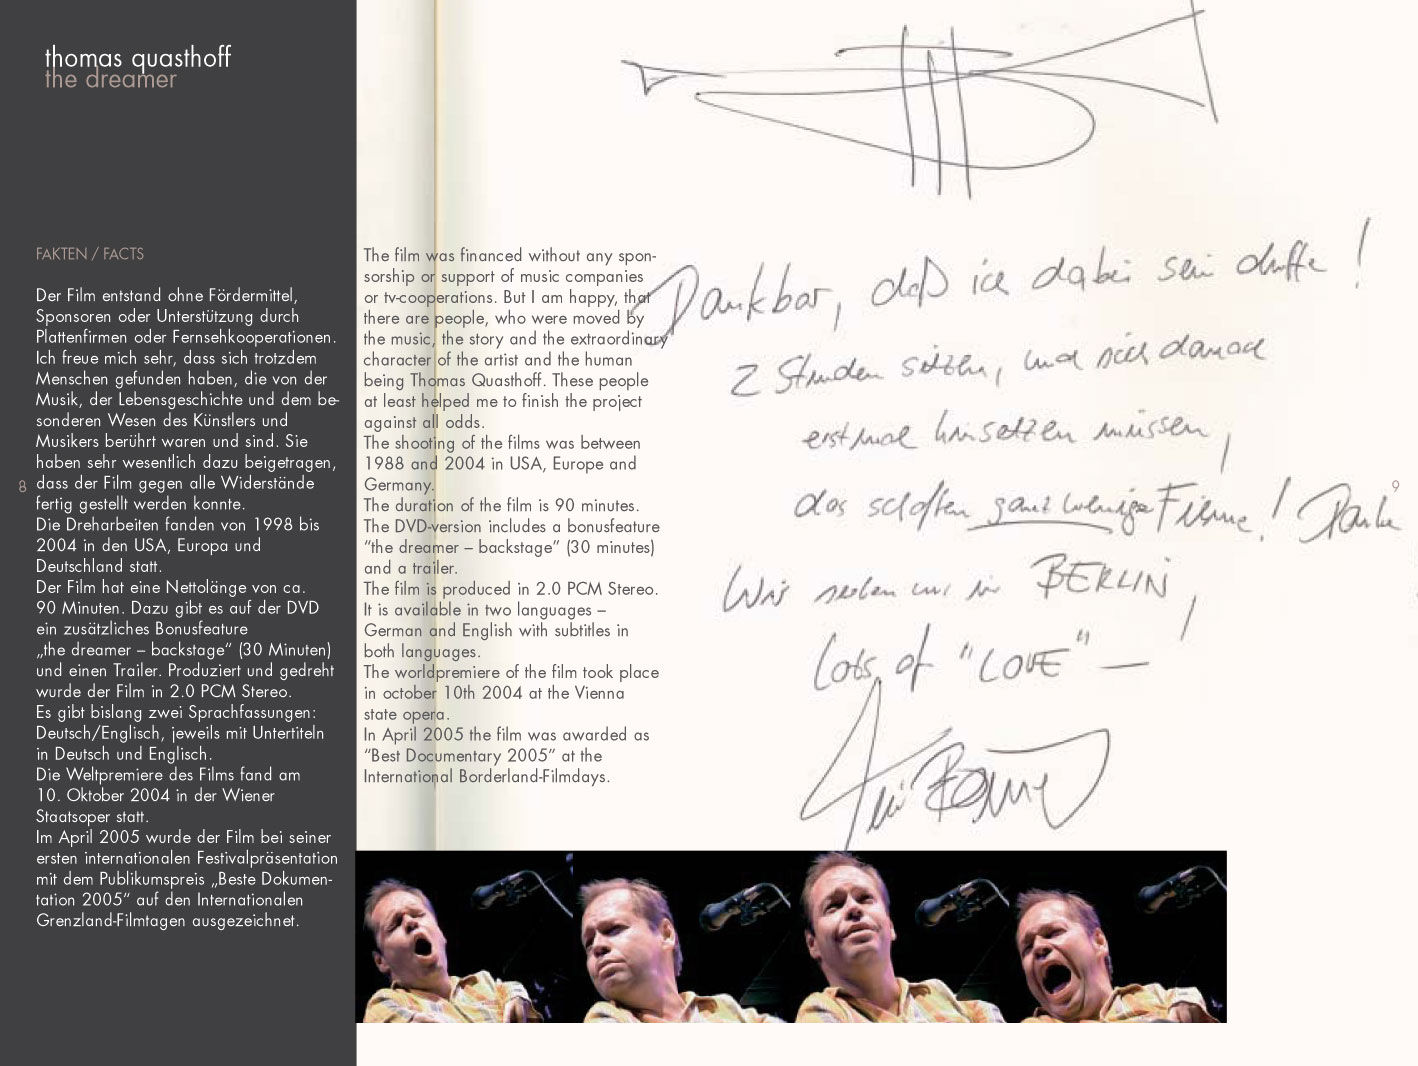 thomas quasthoff
the dreamer
FAKTEN / FACTS
Der Film entstand ohne Fördermittel,
Sponsoren oder Unterstützung durch
Plattenfirmen oder Fernsehkooperationen.
Ich freue mich sehr, dass sich trotzdem
Menschen gefunden haben, die von der
Musik, der Lebensgeschichte und dem be-
sonderen Wesen des Künstlers und
Musikers berührt waren und sind. Sie
haben sehr wesentlich dazu beigetragen,
dass der Film gegen alle Widerstände
fertig gestellt werden konnte.
Die Dreharbeiten fanden von 1998 bis
2004 in den USA, Europa und
Deutschland statt.
Der Film hat eine Nettolänge von ca.
90 Minuten. Dazu gibt es auf der DVD
ein zusätzliches Bonusfeature
„the dreamer – backstage“ (30 Minuten)
und einen Trailer. Produziert und gedreht
wurde der Film in 2.0 PCM Stereo.
Es gibt bislang zwei Sprachfassungen:
Deutsch/Englisch, jeweils mit Untertiteln
in Deutsch und Englisch.
Die Weltpremiere des Films fand am
10. Oktober 2004 in der Wiener
Staatsoper statt.
Im April 2005 wurde der Film bei seiner
ersten internationalen Festivalpräsentation
mit dem Publikumspreis „Beste Dokumen-
tation 2005“ auf den Internationalen
Grenzland-Filmtagen ausgezeichnet.
8
The film was financed without any spon-
sorship or support of music companies
or tv-cooperations. But I am happy, that
there are people, who were moved by
the music, the story and the extraordinary
character of the artist and the human
being Thomas Quasthoff. These people
at least helped me to finish the project
against all odds.
The shooting of the films was between
1988 and 2004 in USA, Europe and
Germany.
The duration of the film is 90 minutes.
The DVD-version includes a bonusfeature
“the dreamer – backstage” (30 minutes)
and a trailer.
The film is produced in 2.0 PCM Stereo.
It is available in two languages –
German and English with subtitles in
both languages.
The worldpremiere of the film took place
in october 10th 2004 at the Vienna
state opera.
In April 2005 the film was awarded as
“Best Documentary 2005” at the
International Borderland-Filmdays.
Dankbar, daß ich dabei sein durfte!
2 Stunden sitzen, und sich danach
erstmal hinsetzen müssen,
das schaffen ganz wenige Filme! Danke
Wir sehen uns in BERLIN!
Lots of "LOVE" —
9